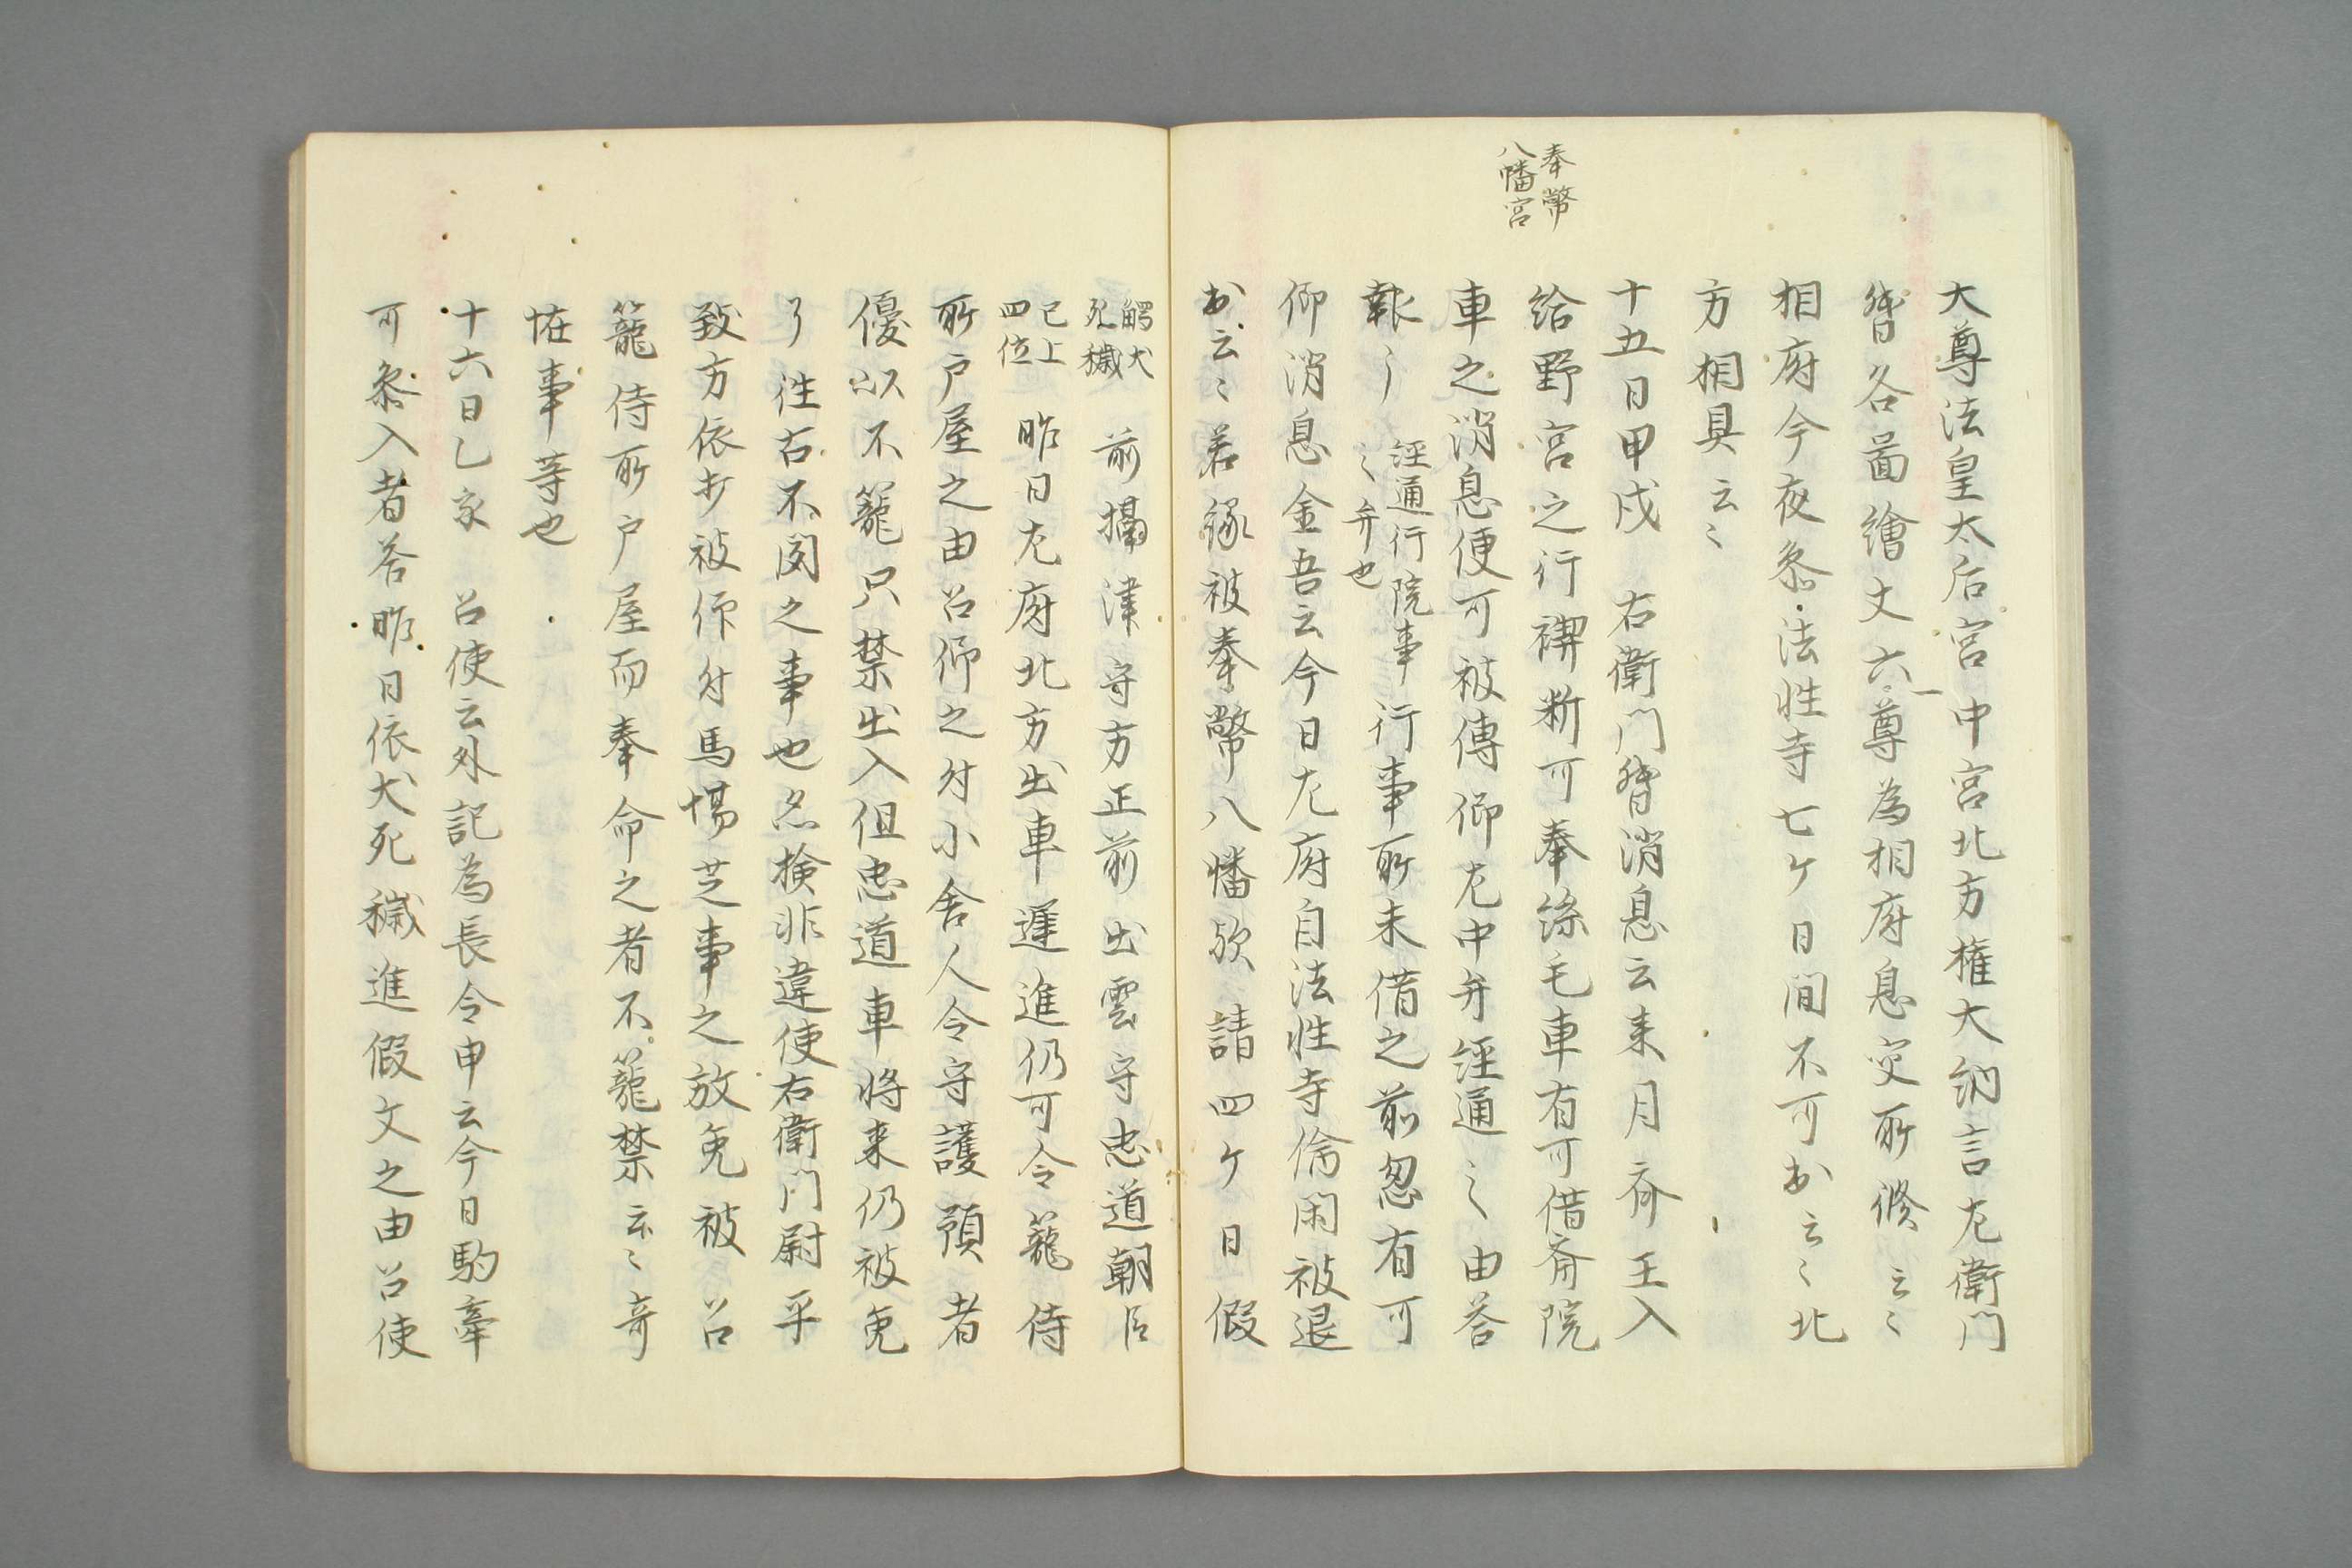 大尊法皇太后宮中宮北方権大納言左衛門
督各啚繪丈六尊為相府息灾所修云〻
相府今夜叅法性寺七ケ日間不可出云〻北
方相具云〻
奉幣
八幡宮
十五日甲戌　右衛門督消息云来月斎王入
給野宮之行禊断可奉絲毛車有可借斎院
車之消息便可被傳仰左中弁経通〻〻由答
報了経通行院事
〻弁也
行事所未借之前忽有可
仰消息金吾云今日左府自法性寺偸閑被退
出云〻若縁被奉幣八幡欤請四ケ日假
觸犬
死穢
前攝津守方正前出雲守忠道朝臣
已上
四位
昨日左府北方出車遅進仍可令籠侍
所戸屋之由召仰之付小舎人令守護預者
優以不籠只禁出入但忠道車将来仍被免
了往古不聞之事也忽検非違使右衛門尉平
致方依打被仰付馬場芝事之放免被召
籠侍所戸屋而奉命之者不籠禁云〻奇
恠事等也
十六日乙亥　召使云外記為長令申云今日駒牽
可叅入者答昨日依犬死穢進假文之由召使